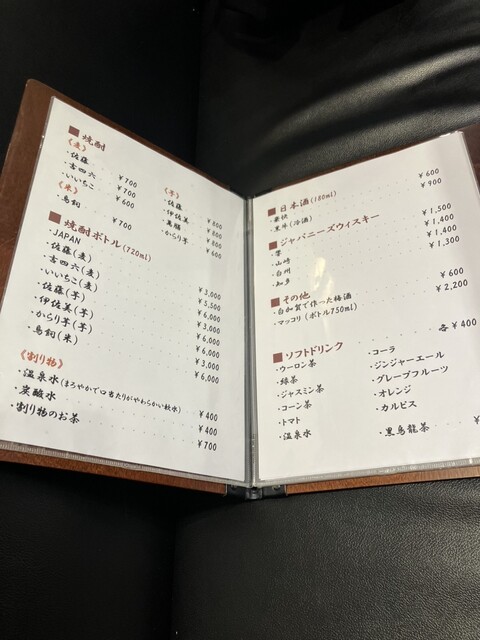 ■焼酎
《麦》
・佐藤 ¥700
・吉四六 ¥700
・いいちこ ¥600
《米》
・鳥飼 ¥700
《芋》
・佐藤 ¥800
・伊佐美 ¥800
・萬膳 ¥800
・からり芋 ¥600
■焼酎ボトル(720ml)
・JAPAN ¥3,000
・佐藤(麦) ¥5,500
・吉四六(麦) ¥6,000
・いいちこ(麦) ¥3,000
・佐藤(芋) ¥6,000
・伊佐美(芋) ¥6,000
・からり芋(芋) ¥3,000
・鳥飼(米) ¥6,000
《割り物》
・温泉水(まろやかで口当たりがやわらかい軟水) ¥400
・炭酸水 ¥400
・割り物のお茶 ¥700
■日本酒(180ml)
・豪快 ¥600
・黒牛(冷酒) ¥900
■ジャパニーズウィスキー
・響 ¥1,500
・山崎 ¥1,400
・白州 ¥1,400
・知多 ¥1,300
■その他
・自加賀で作った梅酒 ¥600
・マッコリ(ボトル750ml) ¥2,200
■ソフトドリンク 各¥400
・ウーロン茶 ・コーラ
・緑茶 ・ジンジャーエール
・ジャスミン茶 ・グレープフルーツ
・コーン茶 ・オレンジ
・トマト ・カルピス
・温泉水 ・黒烏龍茶 ¥